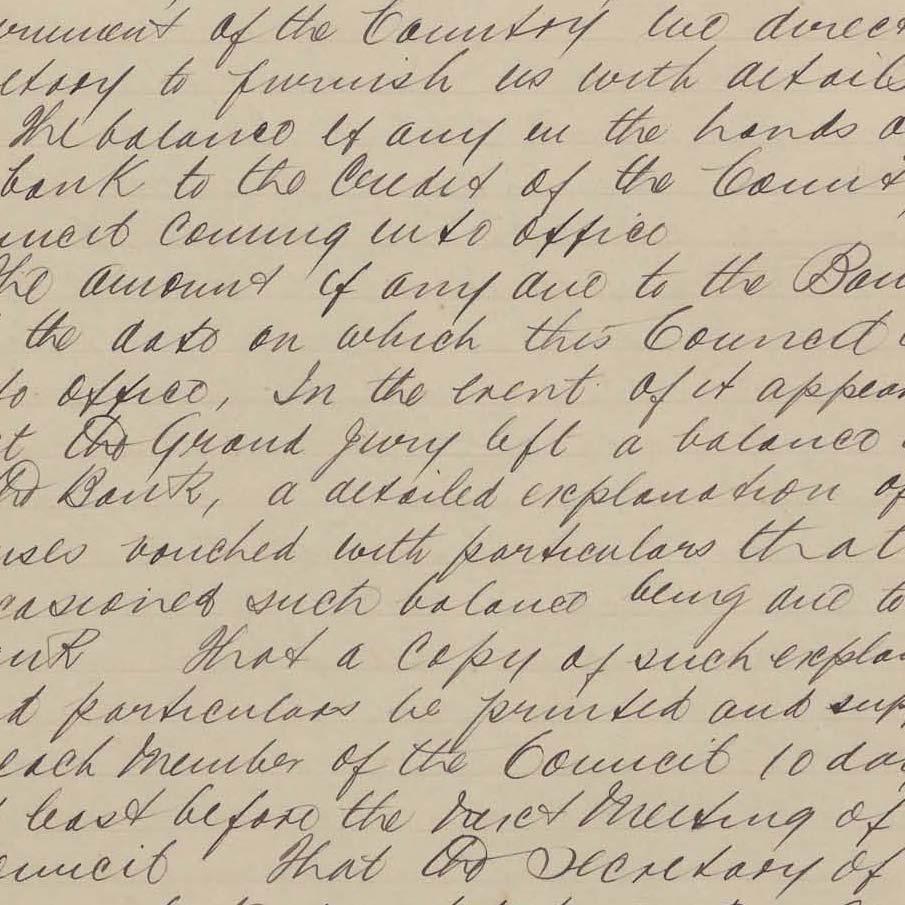 ernment of the Country we direct
etary to furnish us with details
The balance if any in the hands o
bank to the Credit of the Count
uncil Coming into office
The amount if any due to the Ban
the date on which this Council
to office, In the event of it appear
t the Grand Jury left a balance
the Bank, a detailed explanation of
uses vouched with particulars that
casioned such balance being due to
ank That a Copy of such explan
d particulars be printed and supp
each Member of the Council 10 day
least before the next Meeting of
ouncil That the Secretary of